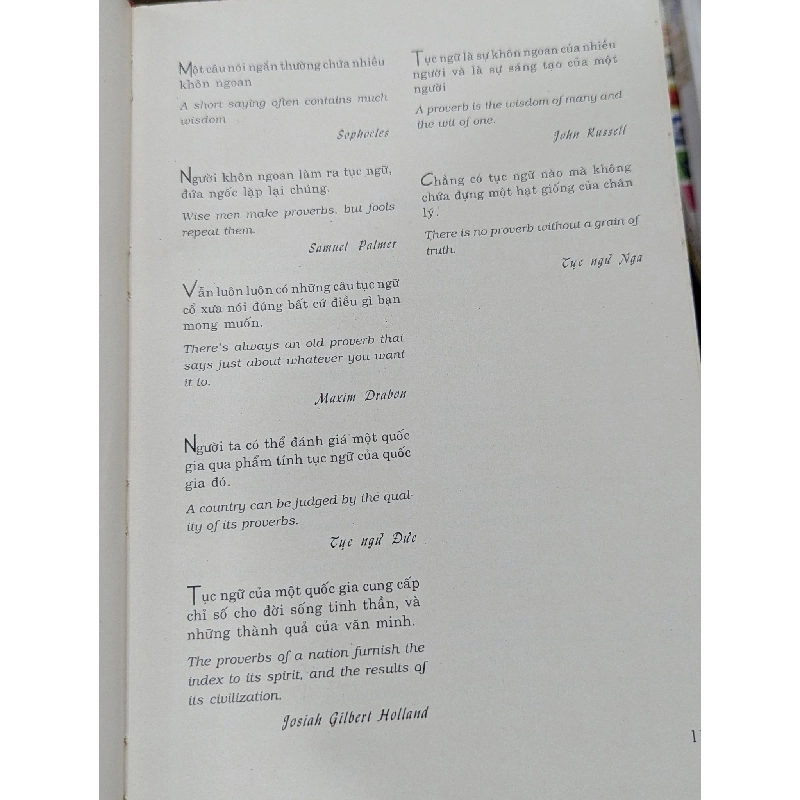 Một câu nói ngắn thường chứa nhiều
khôn ngoan
A short saying often contains much
wisdom
Sophocles
Người khôn ngoan làm ra tục ngữ,
đứa ngốc lặp lại chúng.
Wise men make proverbs, but fools
repeat them.
Samuel Palmer
Vẫn luôn luôn có những câu tục ngữ
cổ xưa nói đúng bất cứ điều gì bạn
mong muốn.
There's always an old proverb that
says just about whatever you want
it to.
Maxim Drabon
Người ta có thể đánh giá một quốc
gia qua phẩm tính tục ngữ của quốc
gia đó.
A country can be judged by the qual-
ity of its proverbs.
Tục ngữ Đức
Tục ngữ của một quốc gia cung cấp
chỉ số cho đời sống tinh thần, và
những thành quả của văn minh.
The proverbs of a nation furnish the
index to its spirit, and the results of
its civilization.
Josiah Gilbert Holland
Tục ngữ là sự khôn ngoan của nhiều
người và là sự sáng tạo của một
người
A proverb is the wisdom of many and
the wit of one.
John Russell
Chẳng có tục ngữ nào mà không
chứa đựng một hạt giống của chân
lý.
There is no proverb without a grain of
truth.
Tục ngữ Nga